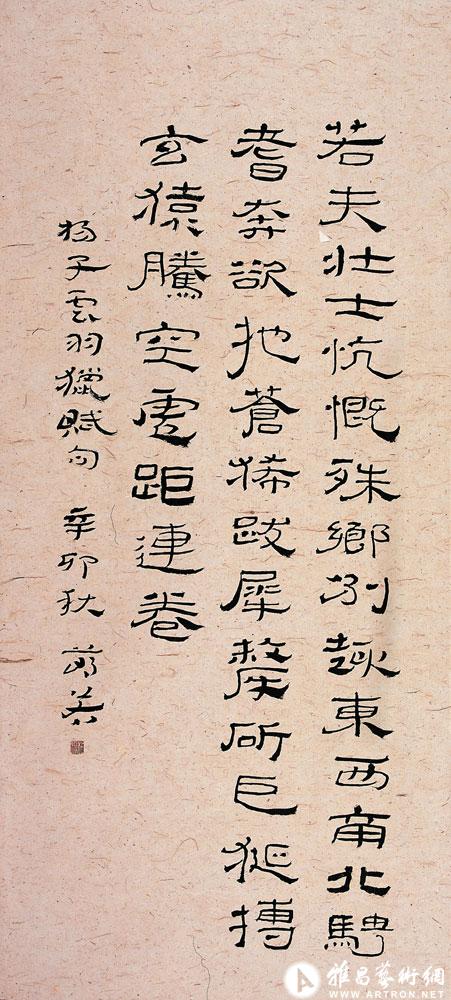 若夫壯士忼慨殊鄉別趣東西南北騁
耆奔欲扡蒼狶跋犀犛斫巨狿搏
玄猿騰空虛距連卷
揚子雲羽獵賦句 辛卯秋
雅昌藝術網
WWW.ARTRON.NET